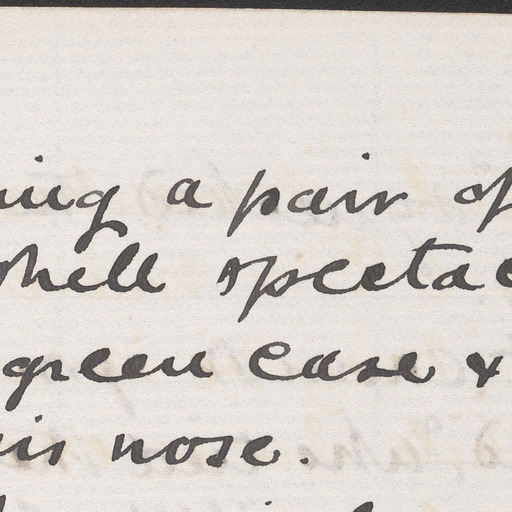 ing a pair of
shell spectac
green case &
is nose.